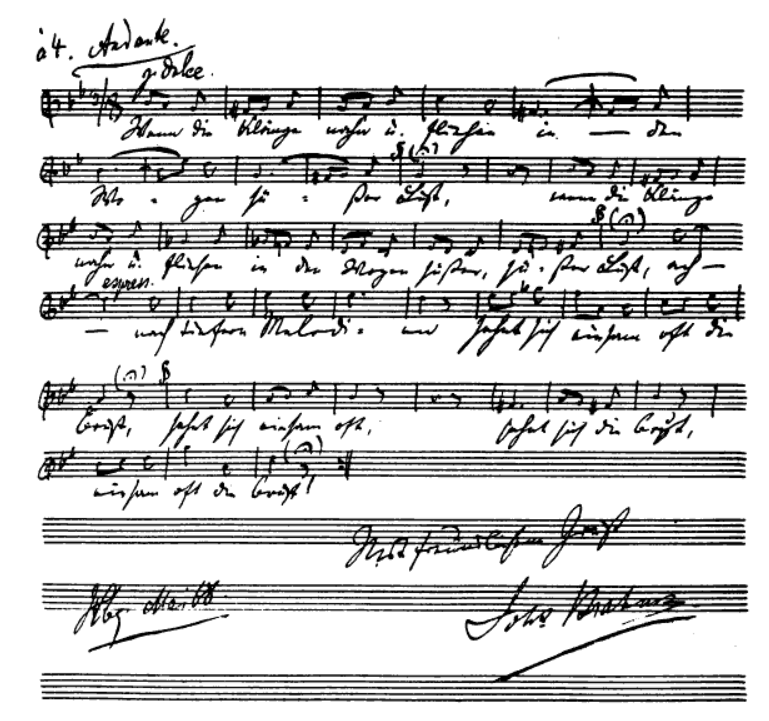 à 4. Andante.
p dolce.
Wenn die Klänge nahn u. fliehen in — den
Wo - gen sü - ßer Lust,
wenn die Klänge
nahn u. fliehen in den Wogen süßer, sü - ßer Lust, ach —
espress.
— nach tiefern Melodi - en sehnt sich einsam oft die
Brust, sehnt sich einsam oft, sehnt sich die Brust,
einsam oft die Brust!
Mit freundlichem Gruß
Hbg. Mai 68.
Johs Brahms